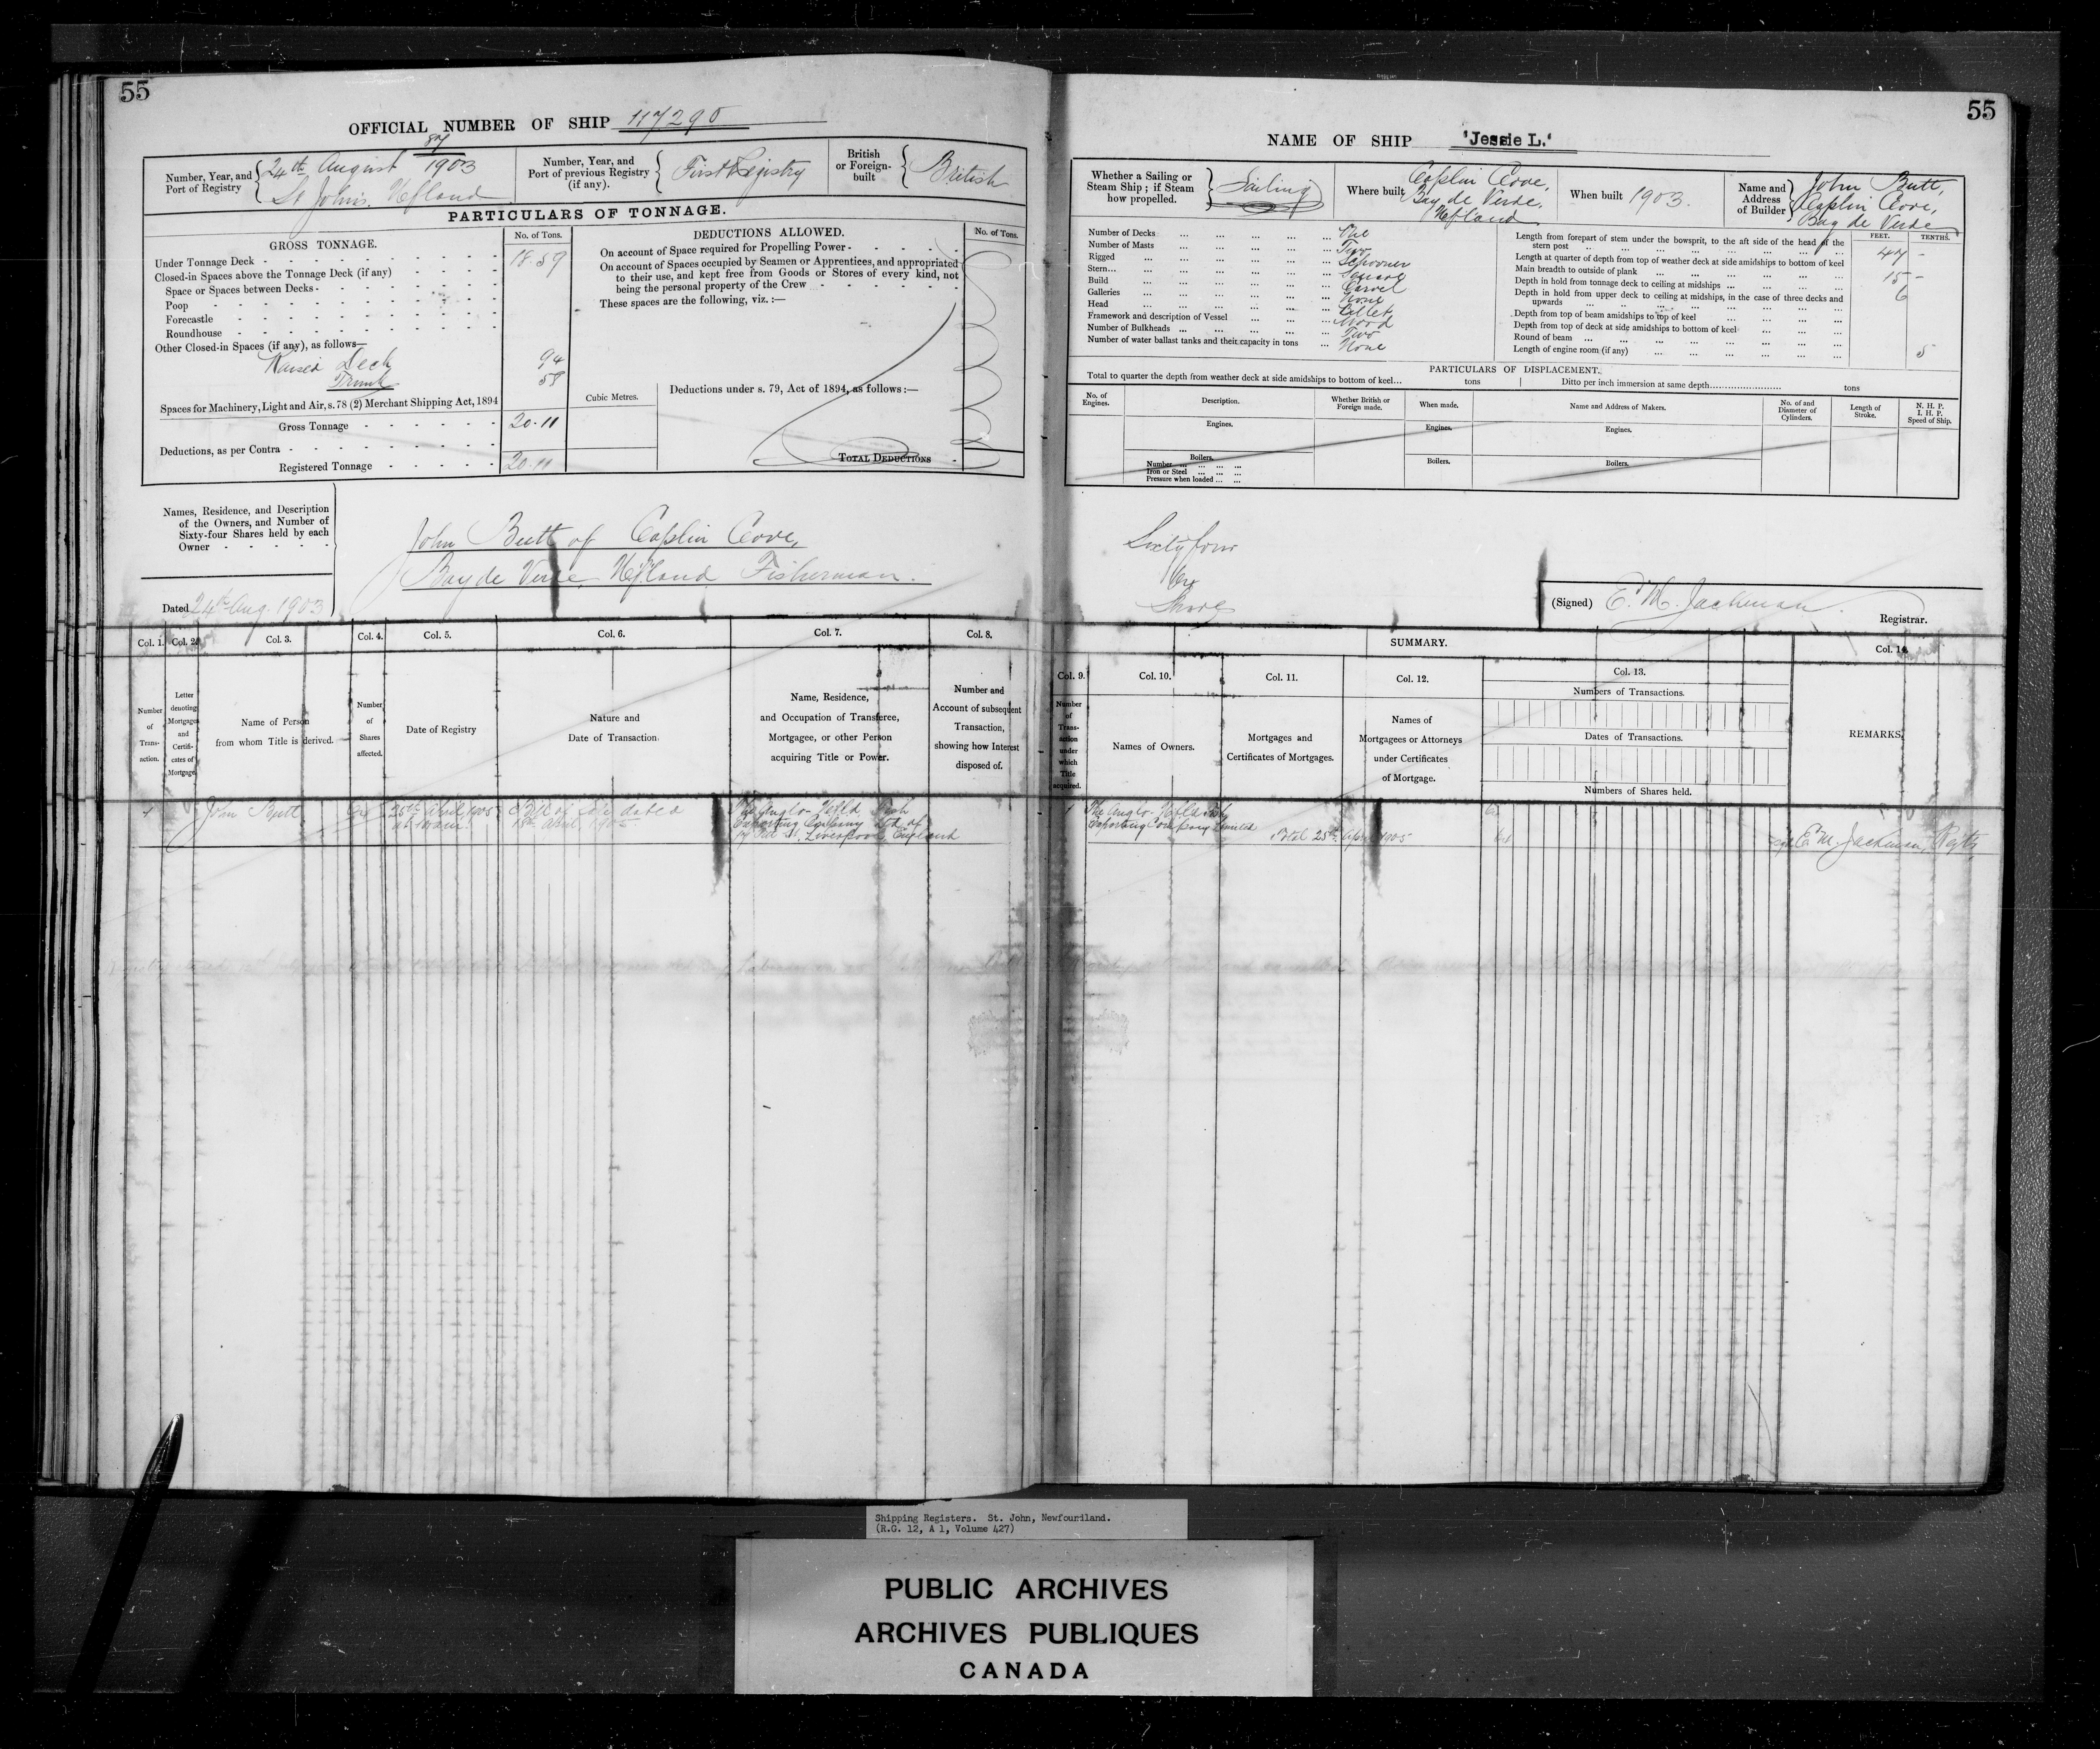 55
OFFICIAL NUMBER OF SHIP 117290
Number, Year, and Port of Registry
87
24th August 1903
St John's. Nfland
Number, Year, and Port of previous Registry (if any).
First Registry
British or Foreign-built
British
PARTICULARS OF TONNAGE.
GROSS TONNAGE.
No. of Tons.
Under Tonnage Deck 18 59
Closed-in Spaces above the Tonnage Deck (if any)
Space or Spaces between Decks
Poop
Forecastle
Roundhouse
Other Closed-in Spaces (if any), as follows—
Raised Deck 94
Trunk 58
Spaces for Machinery, Light and Air, s. 78 (2) Merchant Shipping Act, 1894
Gross Tonnage 20.11
Deductions, as per Contra
Registered Tonnage 20.11
DEDUCTIONS ALLOWED.
No. of Tons.
On account of Space required for Propelling Power
On account of Spaces occupied by Seamen or Apprentices, and appropriated
to their use, and kept free from Goods or Stores of every kind, not
being the personal property of the Crew
These spaces are the following, viz. :—
Cubic Metres.
Deductions under s. 79, Act of 1894, as follows :—
TOTAL DEDUCTIONS
Names, Residence, and Description
of the Owners, and Number of
Sixty-four Shares held by each
Owner
John Butt of Caplin Cove,
Bay de Verde, Nfland, Fisherman.
Dated 24th Aug. 1903
Col. 1. Col. 2. Col. 3. Col. 4. Col. 5. Col. 6. Col. 7. Col. 8.
Number of Trans-action.
Letter denoting Mortgages and Certifi-cates of Mortgage.
Name of Person from whom Title is derived.
Number of Shares affected.
Date of Registry
Nature and Date of Transaction.
Name, Residence, and Occupation of Transferee, Mortgagee, or other Person acquiring Title or Power.
Number and Account of subsequent Transaction, showing how Interest disposed of.
1 John Butt 64 25th April 1905 Bill of Sale dated
at 10 a.m. 18th April 1905
The Anglo Nfld Fish
Exporting Company Ltd of
Liverpool, England
55
NAME OF SHIP 'Jessie L.'
Whether a Sailing or Steam Ship ; if Steam how propelled.
Sailing
Where built
Caplin Cove,
Bay de Verde,
Nfland
When built 1903.
Name and Address of Builder
John Butt,
Caplin Cove,
Bay de Verde
Number of Decks One
Number of Masts Two
Rigged Schooner
Stern Square
Build Carvel
Galleries None
Head Billet
Framework and description of Vessel Wood
Number of Bulkheads Two
Number of water ballast tanks and their capacity in tons None
FEET. TENTHS.
Length from forepart of stem under the bowsprit, to the aft side of the head of the
stern post 47 -
Length at quarter of depth from top of weather deck at side amidships to bottom of keel
Main breadth to outside of plank 15 -
Depth in hold from tonnage deck to ceiling at midships 6
Depth in hold from upper deck to ceiling at midships, in the case of three decks and
upwards
Depth from top of beam amidships to top of keel
Depth from top of deck at side amidships to bottom of keel
Round of beam 5
Length of engine room (if any)
PARTICULARS OF DISPLACEMENT.
Total to quarter the depth from weather deck at side amidships to bottom of keel... tons
Ditto per inch immersion at same depth tons
No. of Engines.
Description.
Whether British or Foreign made.
When made.
Name and Address of Makers.
No. of and Diameter of Cylinders.
Length of Stroke.
N. H. P. I. H. P. Speed of Ship.
Engines. Engines. Engines.
Boilers. Boilers. Boilers.
Number
Iron or Steel
Pressure when loaded
Sixty four
64
Shares
(Signed) E. M. Jackman. Registrar.
SUMMARY.
Col. 9. Col. 10. Col. 11. Col. 12. Col. 13. Col. 14.
Number of Trans-action under which Title acquired.
Names of Owners.
Mortgages and Certificates of Mortgages.
Names of Mortgagees or Attorneys under Certificates of Mortgage.
Numbers of Transactions.
Dates of Transactions.
Numbers of Shares held.
REMARKS.
1 The Anglo Nfld Fish 64
Exporting Company Limited
Total 25th April 1905 64
E. M. Jackman, Rgtr
Shipping Registers. St. John, Newfoundland.
(R.G. 12, A 1, Volume 427)
PUBLIC ARCHIVES
ARCHIVES PUBLIQUES
CANADA